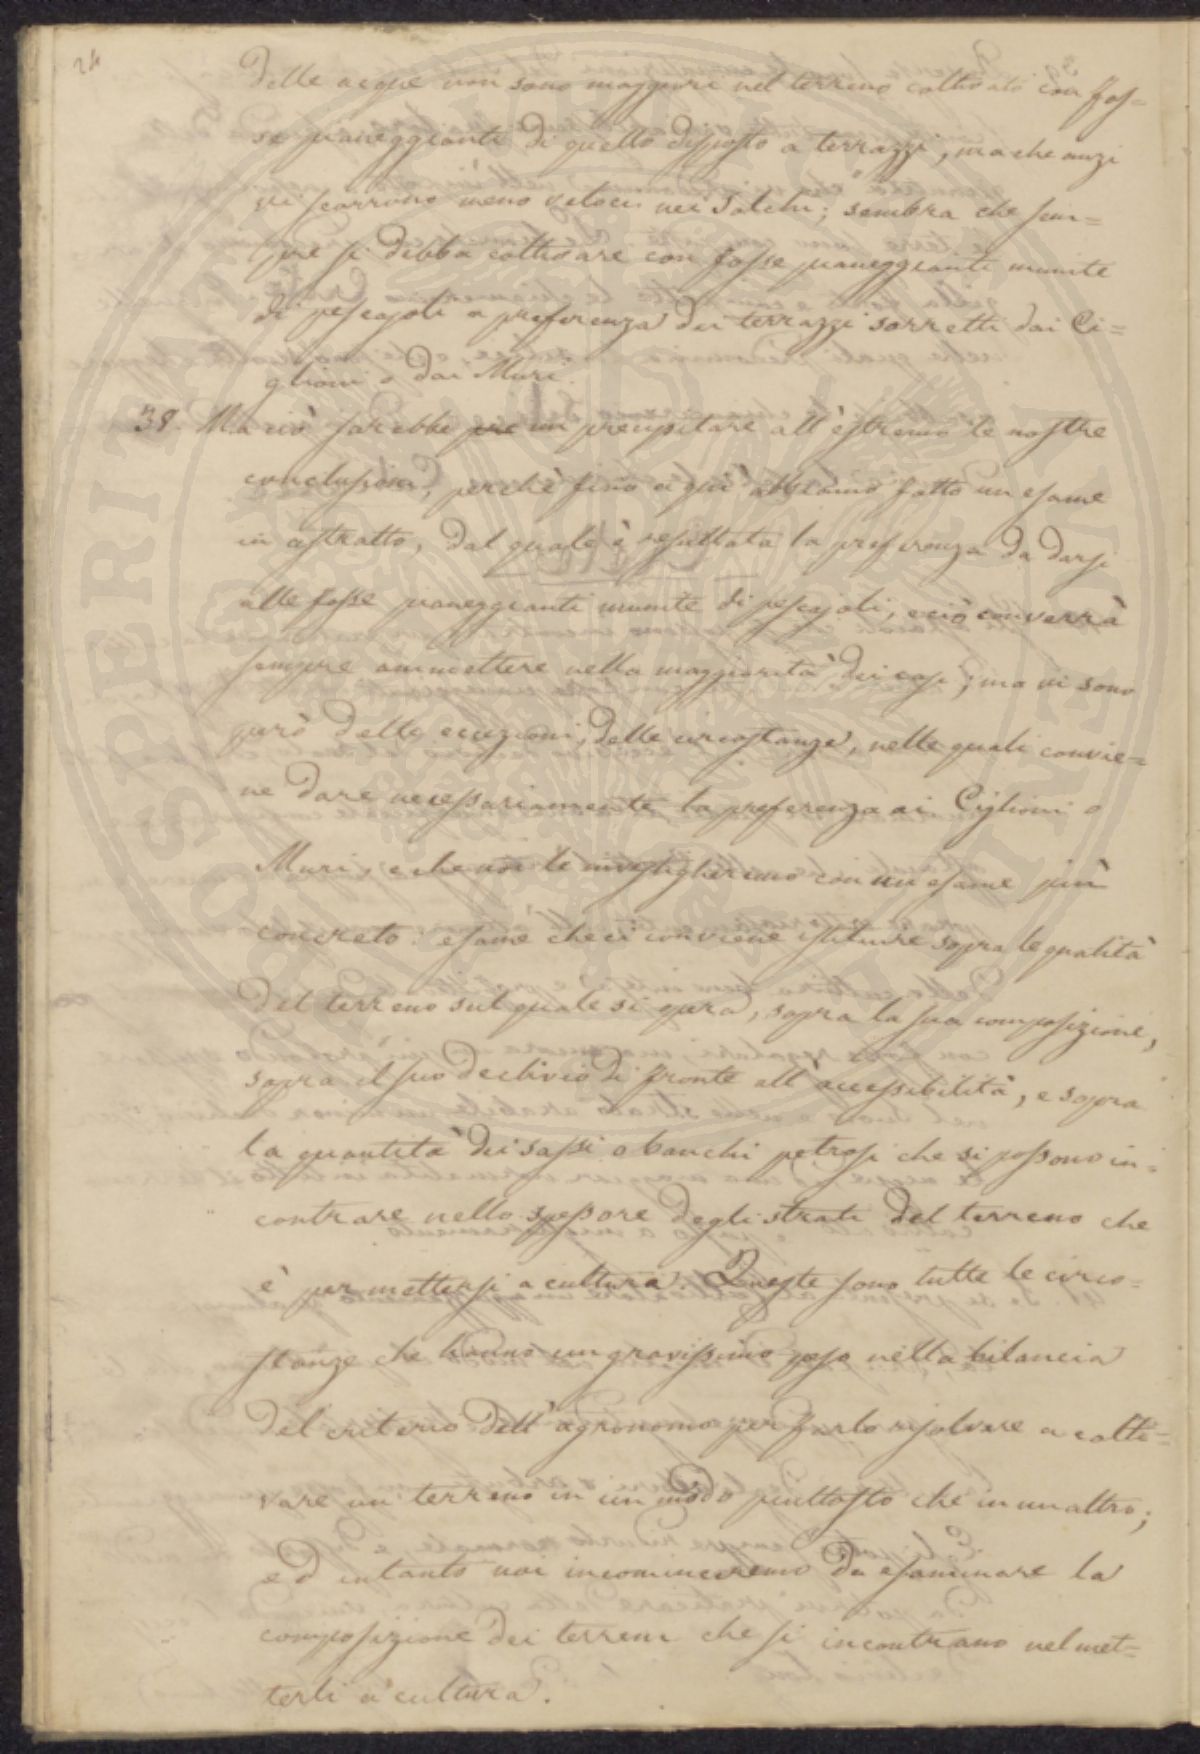 24
delle acque non sono maggiori nel terreno coltivato con fos=
se pianeggianti di quello disposto a terrazzi, ma che anzi
vi scorrono meno veloci nei solchi; sembra che sem=
pre si debba coltivare con fosse pianeggianti munite
di pescajoli a preferenza dei terrazzi sorretti dai Ci=
glioni o dai Muri.
38. Ma ciò sarebbe un precipitare all'estremo le nostre
conclusioni, perchè fino a quì abbiamo fatto un esame
in astratto, dal quale è resultata la preferenza da darsi
alle fosse pianeggianti munite di pescajoli, e ciò converrà
sempre ammettere nella maggiorità dei casi; ma vi sono
però delle eccezioni, delle circostanze, nelle quali convie=
ne dare necessariamente la preferenza ai Ciglioni o
Muri, e che noi le investigheremo con un esame più
concreto: esame che ci conviene istituire sopra le qualità
del terreno sul quale si opera, sopra la sua composizione,
sopra il suo declivio di fronte all'accessibilità, e sopra
la quantità dei sassi o banchi petrosi che si possono in=
contrare nello spessore degli strati del terreno che
è per mettersi a cultura. Queste sono tutte le circo=
stanze che hanno un gravissimo peso nella bilancia
del criterio dell'agronomo per farlo risolvere a colti=
vare un terreno in un modo piuttosto che in un altro;
ed intanto noi incominceremo da esaminare la
composizione dei terreni che si incontrano nel met=
terli a cultura.
PROSPERITATI PUBLICAE